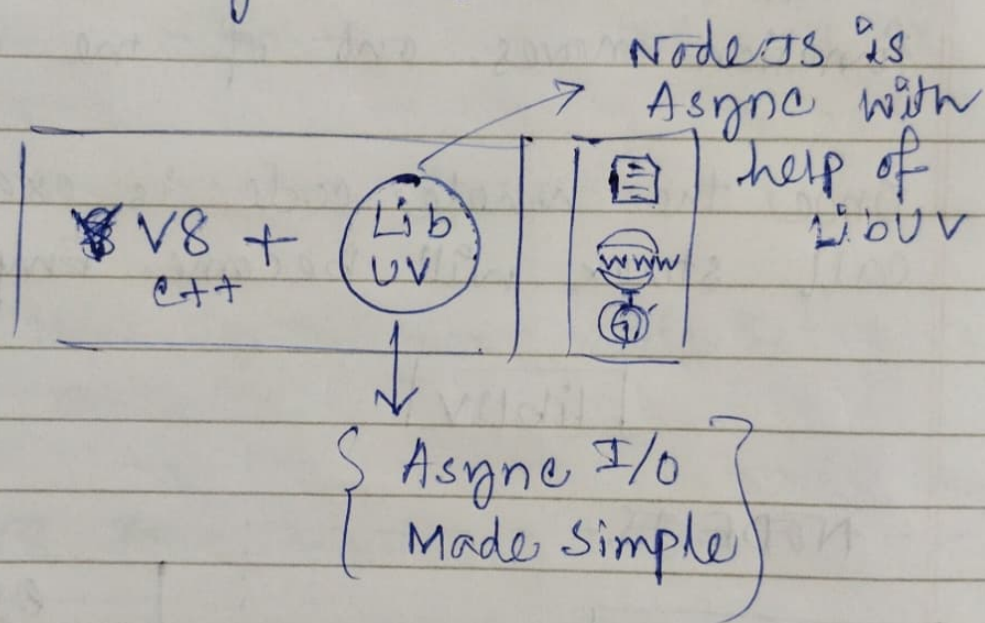 NodeJS is
Async with
help of
LibUV
V8 +
C++
Lib
UV
www
Async I/O
Made Simple